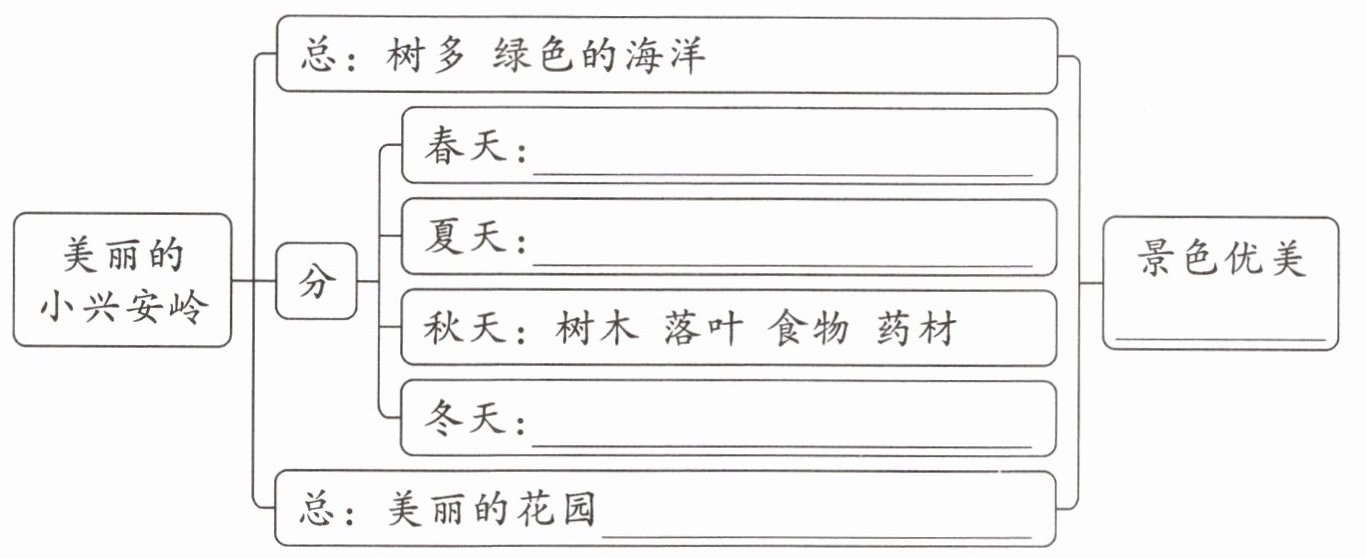 总：树多 绿色的海洋
春天：
夏天：
美丽的
小兴安岭
分
景色优美
秋天：树木 落叶 食物 药材
冬天：
总：美丽的花园